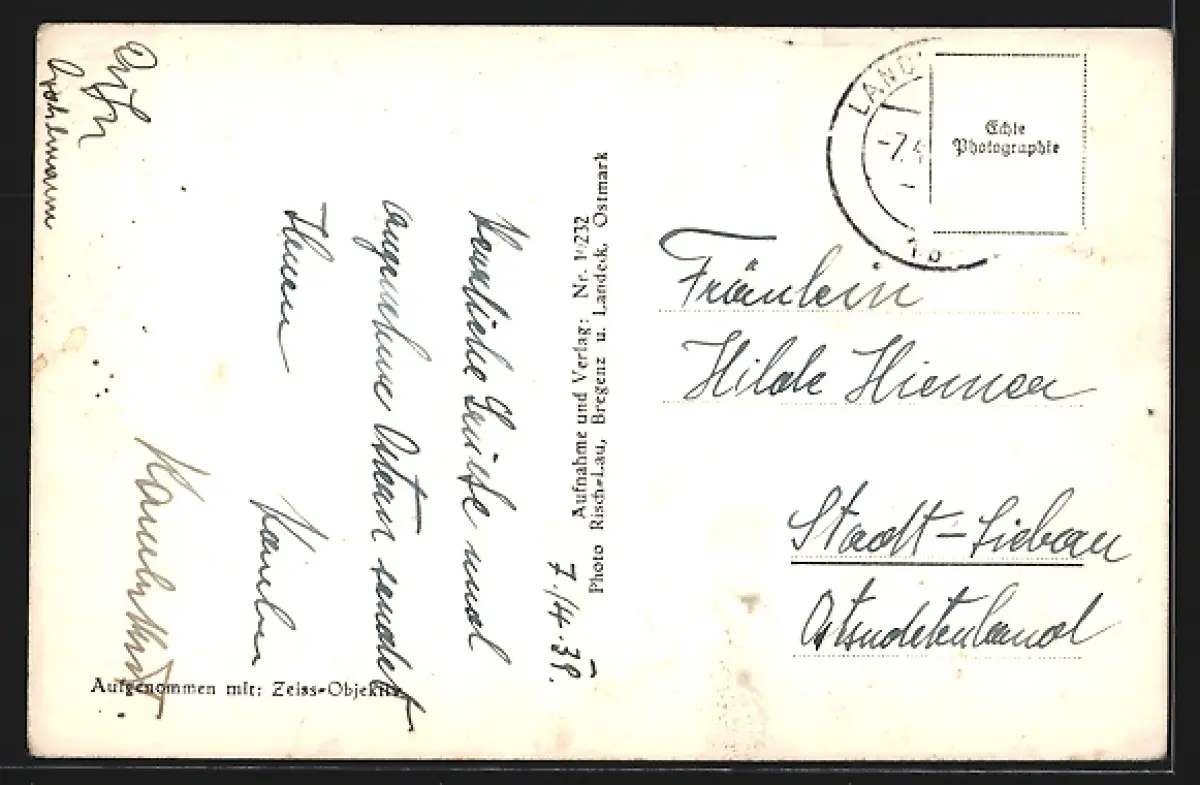 7./4.39.
Herzliche Grüße und
angenehme Ostern sendet
Ihnen
Aufgenommen mit: Zeiss-Objektiv
Aufnahme und Verlag: Nr. 232
Photo Risch-Lau, Bregenz u. Landeck, Ostmark
LAND
-7.4
Echte
Photographie
Fräulein
Hilde
Stadt-Liebau
Ostsudetenland